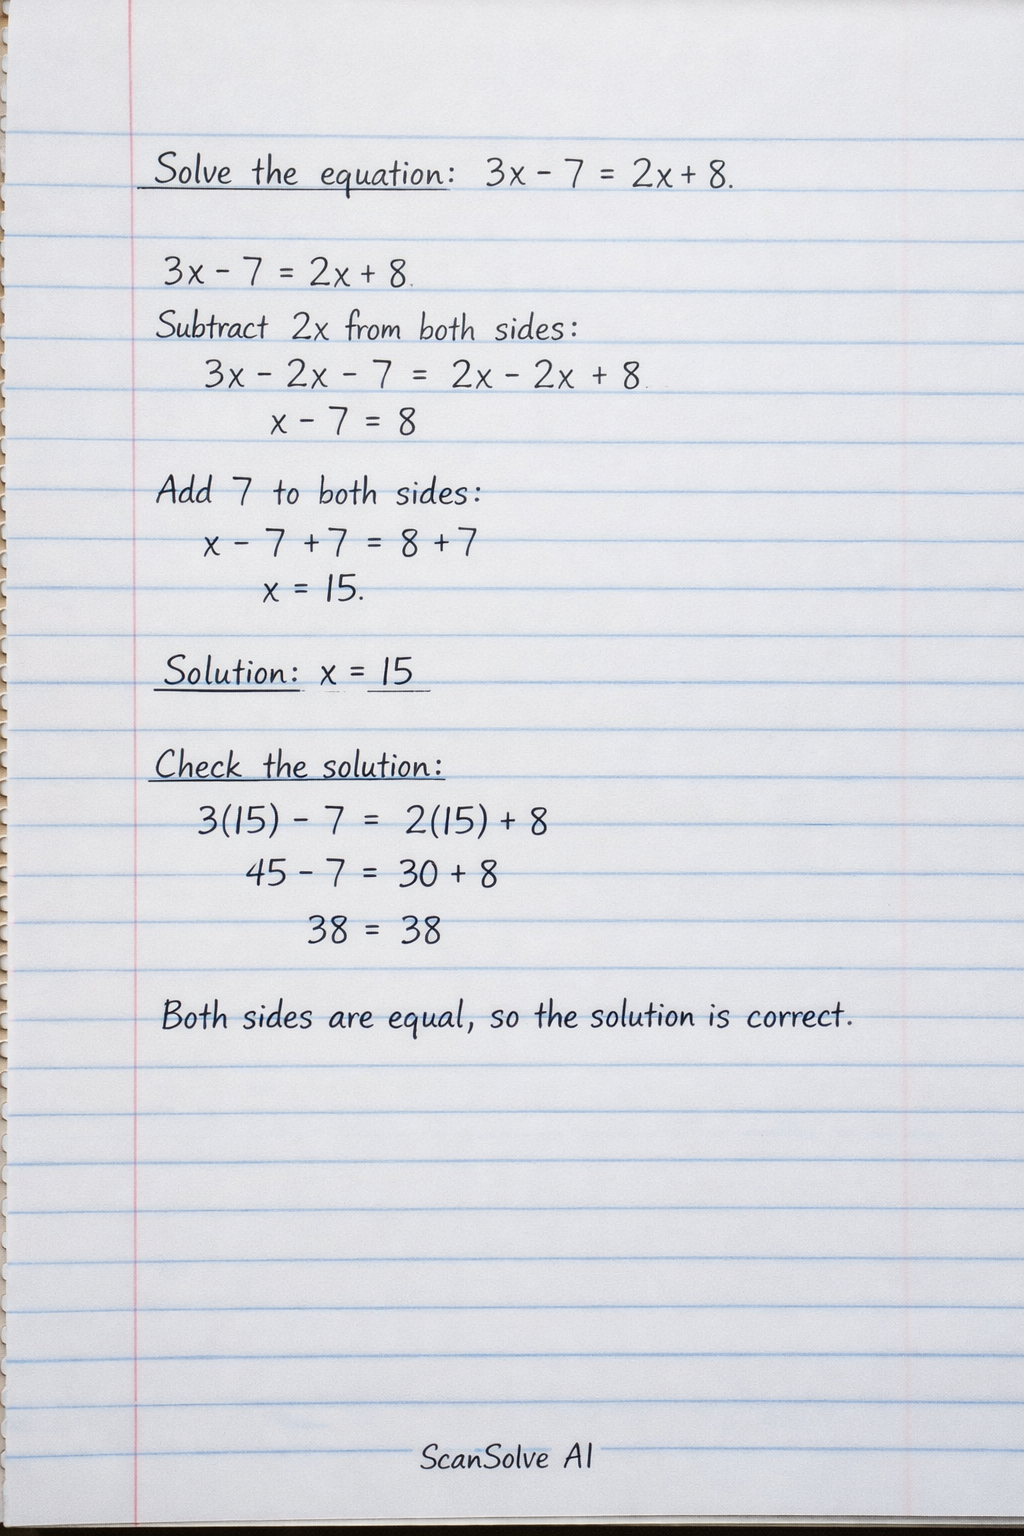 Solve the equation: 3x - 7 = 2x + 8.
3x - 7 = 2x + 8.
Subtract 2x from both sides:
3x - 2x - 7 = 2x - 2x + 8.
x - 7 = 8
Add 7 to both sides:
x - 7 + 7 = 8 + 7
x = 15.
Solution: x = 15
Check the solution:
3(15) - 7 = 2(15) + 8
45 - 7 = 30 + 8
38 = 38
Both sides are equal, so the solution is correct.
ScanSolve AI